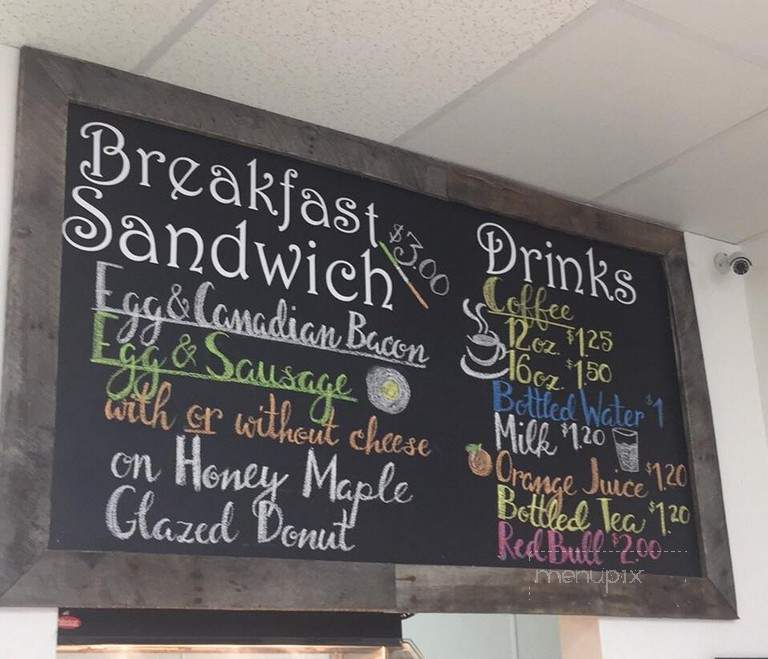 Breakfast
Sandwich $3.00
Egg & Canadian Bacon
Egg & Sausage
with or without cheese
on Honey Maple
Glazed Donut
Drinks
Coffee
12oz. $1.25
16oz. $1.50
Bottled Water $1
Milk $1.20
Orange Juice $1.20
Bottled Tea $1.20
Red Bull $2.00
menupix